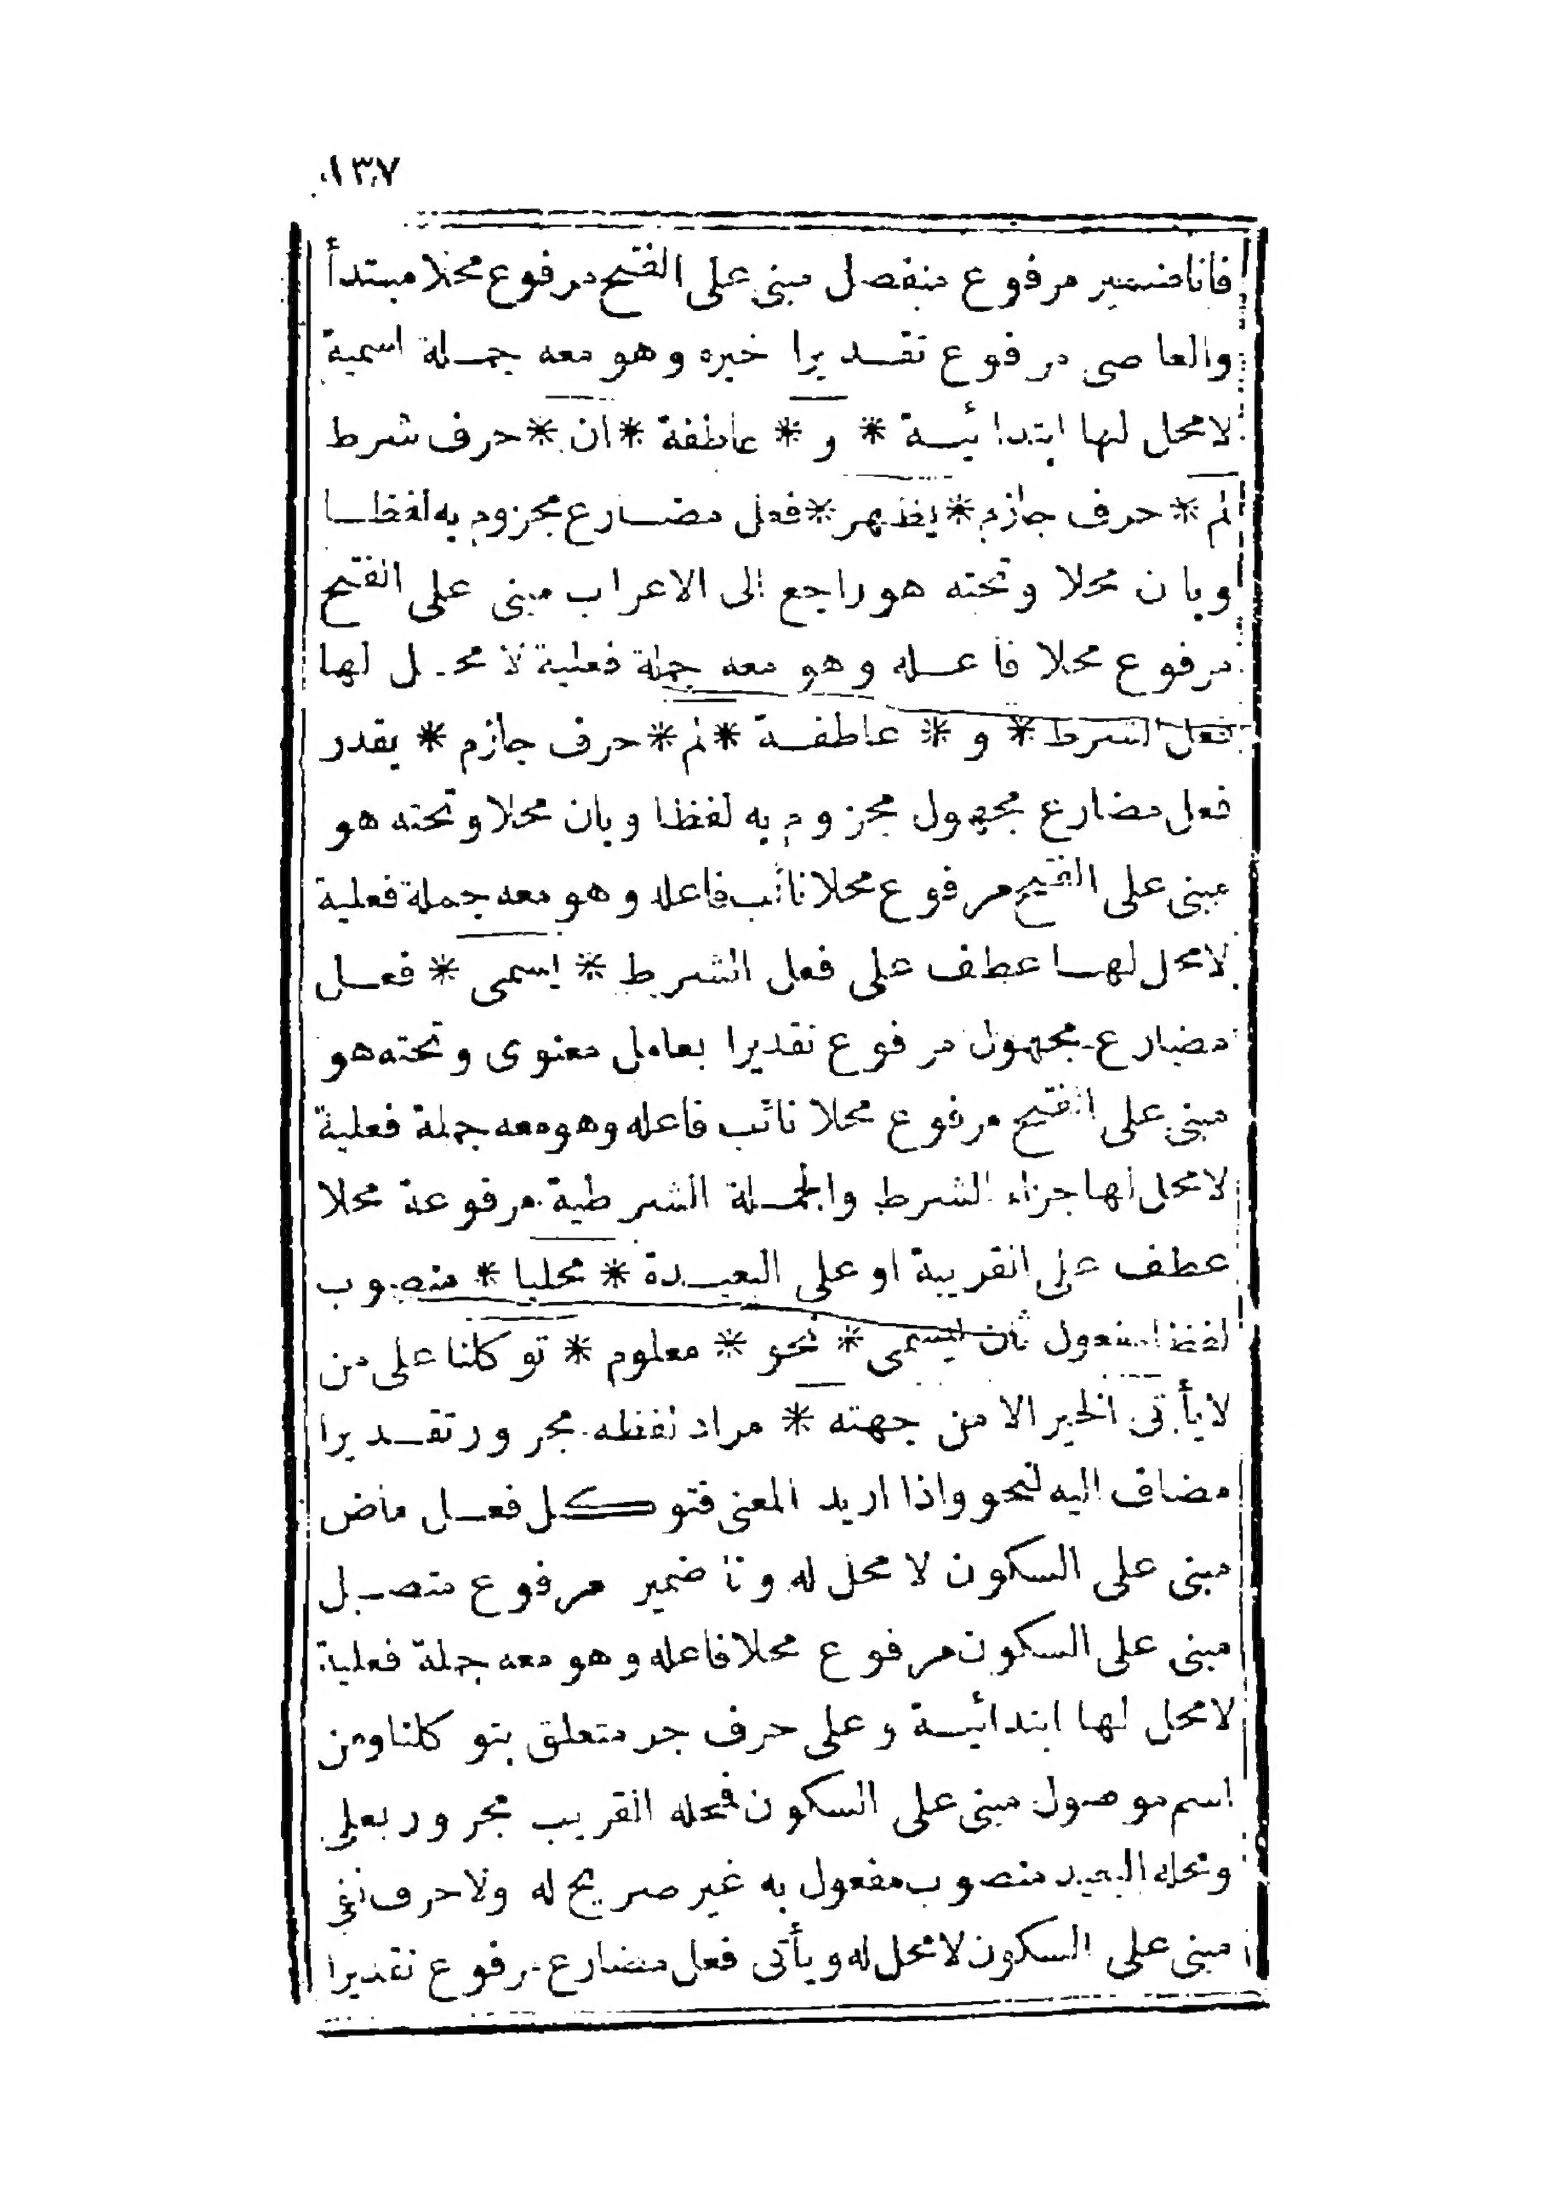 ١٣٧
فانا ضمير مرفوع منفصل مبنى على الفتح مرفوع محلا مبتدأ
والعاصى مرفوع تقديرا خبره وهو معه جملة اسمية
لامحل لها ابتدائية * و * عاطفة * ان * حرف شرط
لم * حرف جازم * يظهر * فعل مضارع مجزوم به لفظا
وبان محلا وتحته هو راجع الى الاعراب مبنى على الفتح
مرفوع محلا فاعله وهو معه جملة فعلية لا محل لها
فعل الشرط * و * عاطفة * لم * حرف جازم * يقدر
فعل مضارع مجهول مجزوم به لفظا وبان محلا وتحته هو
مبنى على الفتح مرفوع محلا نائب فاعله وهو معه جملة فعلية
لامحل لها عطف على فعل الشرط * يسمى * فعل
مضارع مجهول مرفوع تقديرا بعامل معنوى وتحته هو
مبنى على الفتح مرفوع محلا نائب فاعله وهو معه جملة فعلية
لامحل لها جزاء الشرط والجملة الشرطية مرفوعة محلا
عطف على القريبة او على البعيدة * محليا * منصوب
لفظا مفعول ثان ليسمى * نحو * معلوم * توكلنا على من
لا يأتى الخير الا من جهته * مراد لفظه مجرور تقديرا
مضاف اليه لنحو واذا اريد المعنى فتوكل فعل ماض
مبنى على السكون لا محل له ونا ضمير مرفوع متصل
مبنى على السكون مرفوع محلا فاعله وهو معه جملة فعلية
لامحل لها ابتدائية وعلى حرف جر متعلق بتوكلنا ومن
اسم موصول مبنى على السكون فمحله القريب مجرور بعلى
ومحله البعيد منصوب مفعول به غير صريح له ولا حرف نفى
مبنى على السكون لامحل له ويأتى فعل مضارع مرفوع تقديرا